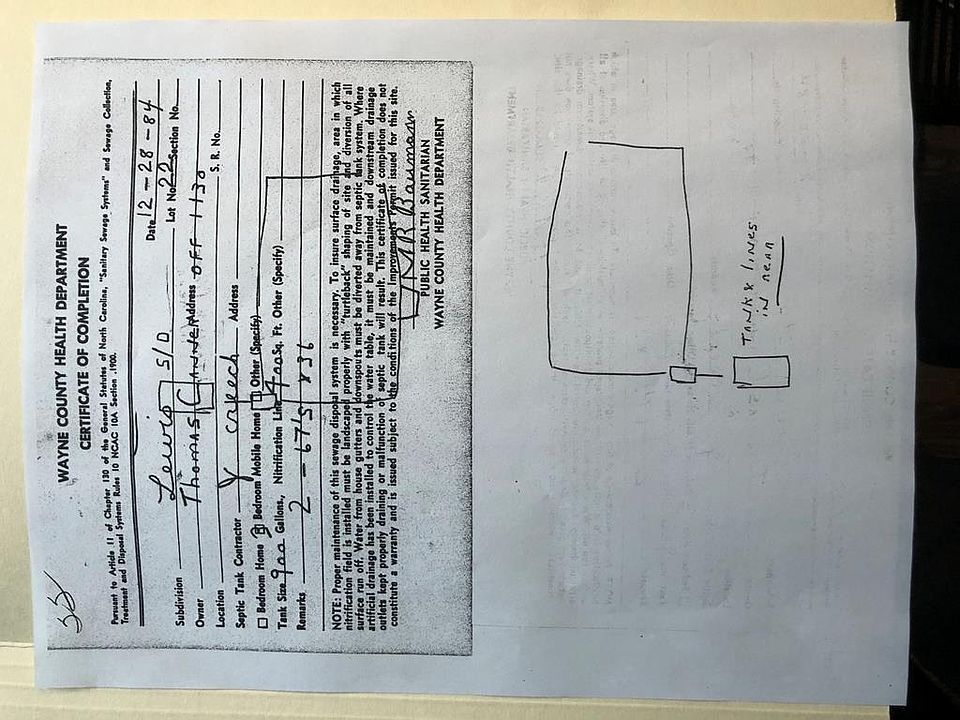 WAYNE COUNTY HEALTH DEPARTMENT
CERTIFICATE OF COMPLETION
Pursuant to Article 11 of Chapter 130 of the General Statutes of North Carolina, "Sanitary Sewage Systems" and Sewage Collection,
Treatment and Disposal Systems Rules 10 NCAC 10A Section .1900.
Date 12-28-84
Subdivision Lewis S/D Lot No. 22 Section No.
Owner Thomas Address OFF 1130
Location S. R. No.
Septic Tank Contractor Creech Address
☐ Bedroom Home 3 Bedroom Mobile Home ☐ Other (Specify)
Tank Size 900 Gallons, Nitrification Line 400 Sq. Ft. Other (Specify)
Remarks 2 - 67'S X 36
NOTE: Proper maintenance of this sewage disposal system is necessary. To insure surface drainage, area in which
nitrification field is installed must be landscaped properly with "turtleback" shaping of site and diversion of all
surface run off. Water from house gutters and downspouts must be diverted away from septic tank system. Where
artificial drainage has been installed to control the water table, it must be maintained and downstream drainage
outlets kept properly draining or malfunction of septic tank will result. This certificate of completion does not
constitute a warranty and is issued subject to the conditions of the Improvements Permit issued for this site.
Baumann
PUBLIC HEALTH SANITARIAN
WAYNE COUNTY HEALTH DEPARTMENT
TANK & LINES
IN REAR